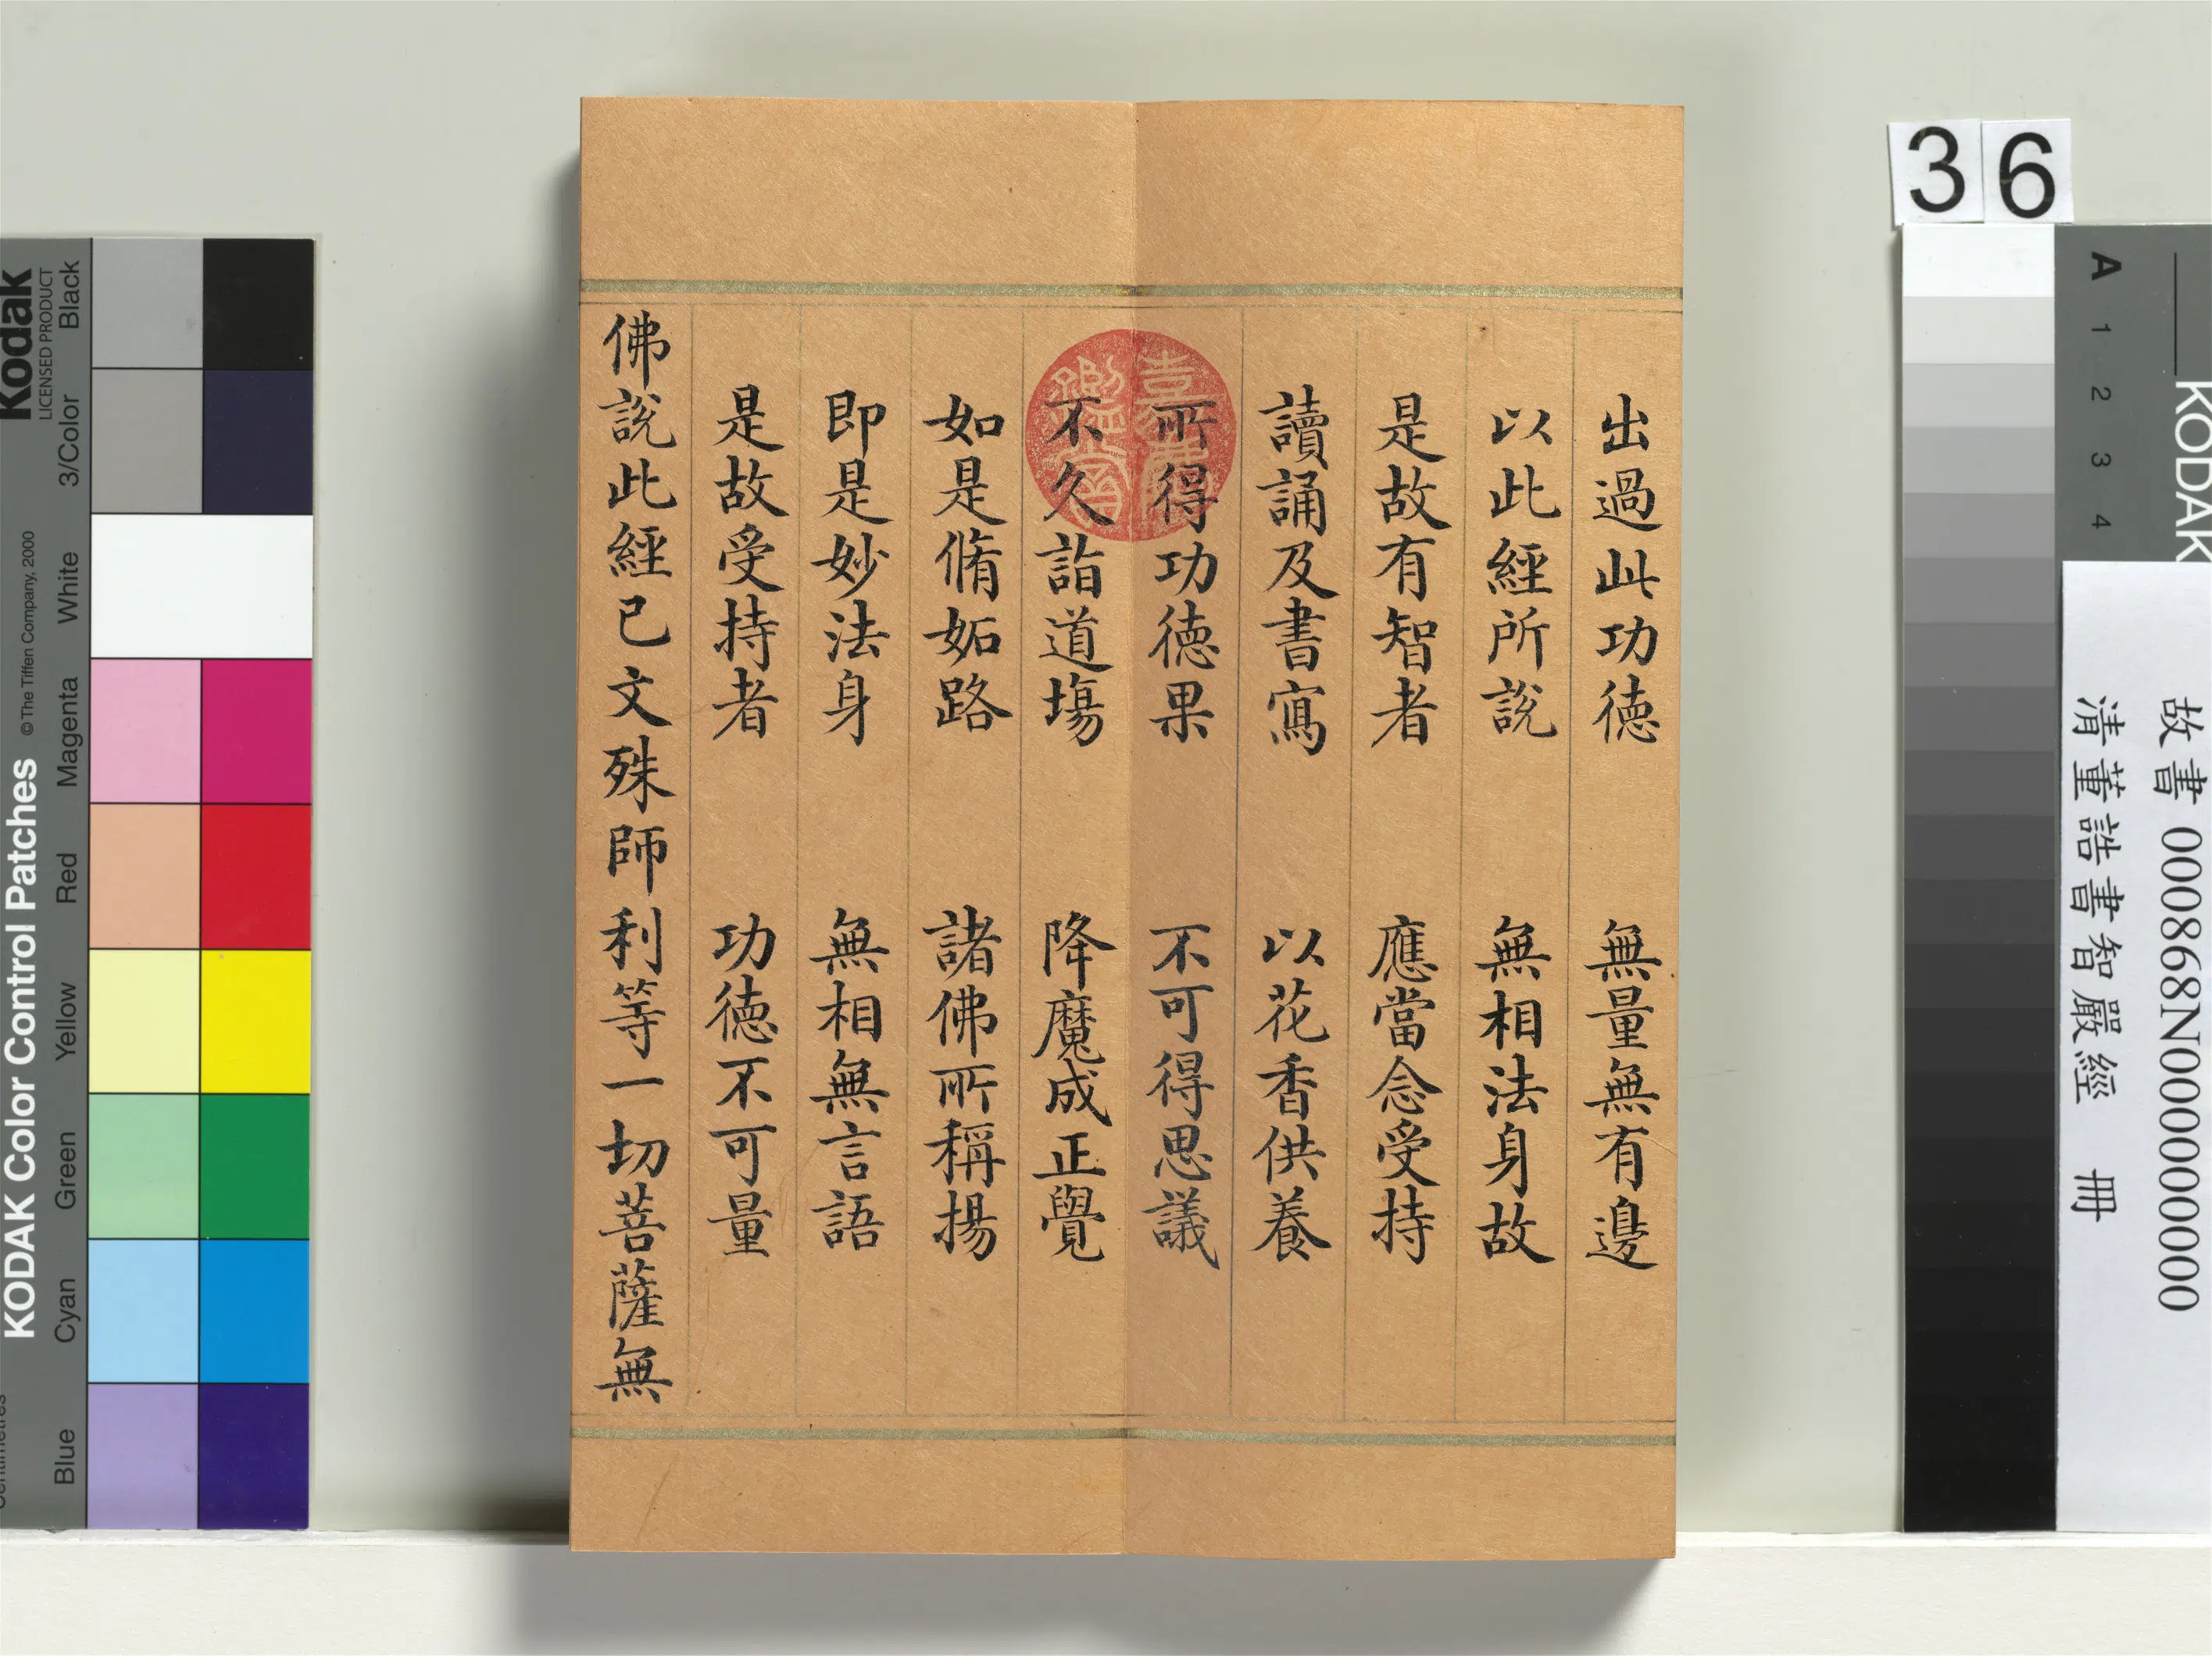 出過此功德　無量無有邊
以此經所說　無相法身故
是故有智者　應當念受持
讀誦及書寫　以花香供養
所得功德果　不可得思議
不久詣道場　降魔成正覺
如是脩妬路　諸佛所稱揚
即是妙法身　無相無言語
是故受持者　功德不可量
佛說此經已文殊師利等一切菩薩無
嘉慶鑑賞
36
故書 000868N000000000
清董誥書智嚴經　冊
KODAK
A 1 2 3 4
Kodak
LICENSED PRODUCT
KODAK Color Control Patches
©The Tiffen Company, 2000
Blue Cyan Green Yellow Red Magenta White 3/Color Black